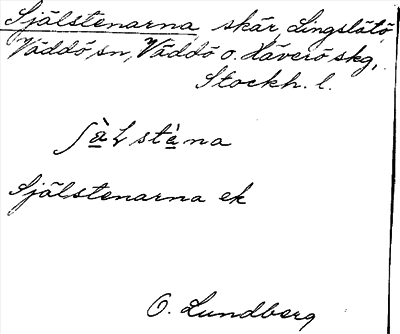 Själstenarna, skär, Lingslätö,
Väddö sn, Väddö o. Häverö skg,
Stockh. l.
ʃà̲Lstè̲na
Själstenarna ek
O. Lundberg